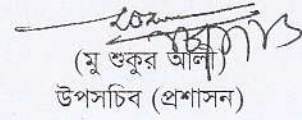 (মু শুকুর আলী)
উপসচিব (প্রশাসন)